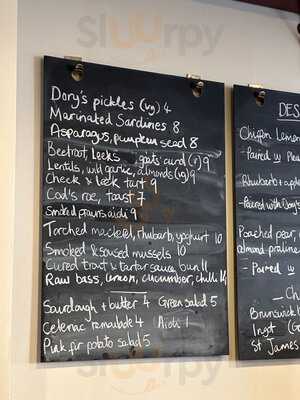 Sluurpy
Dory's pickles (vg) 4
Marinated Sardines 8
Asparagus, pumpkin seed 8
Beetroot, Leeks goats curd (v) 9
Lentils, wild garlic, almonds (vg) 9
Check & leek tart 9
Cod's roe, toast 7
Smoked prawns aioli 9
Torched mackerel, rhubarb, yoghurt 10
Smoked & soused mussels 10
Cured trout & tartar sauce bun 11
Raw bass, lemon, cucumber, chilli 14
Sourdough + butter 4 Green salad 5
Celeriac remoulade 4 Aioli 1
Pink fir potato salad 5
DES
Chiffon Lemon
- Paired w
Rhubarb + a
- Paired with Dory's
Poached pear,
almond praline
- Paired w
- Ch
Brunswick b
Ingot (G
St James
Sluurpy